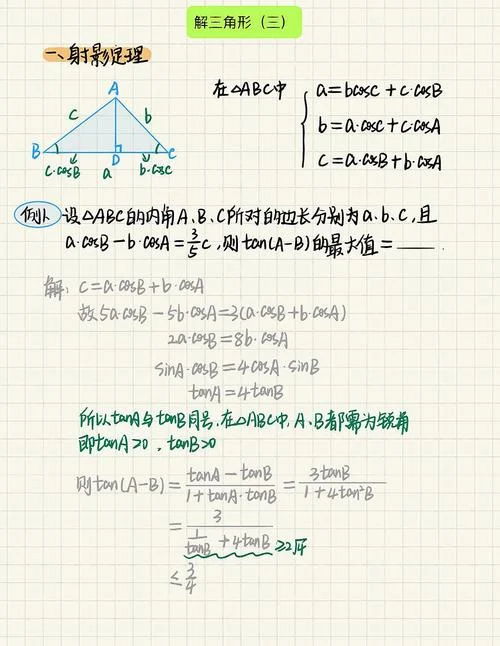 解三角形（三）
一、射影定理
在△ABC中
a=bcosC+c·cosB
b=a·cosC+c·cosA
c=a·cosB+b·cosA
A
c
b
B
D
C
c·cosB
a
b·cosC
例1、设△ABC的内角A、B、C所对的边长分别为a、b、c，且
a·cosB-b·cosA=3/5c，则tan(A-B)的最大值=____.
解：c=a·cosB+b·cosA
故5a·cosB-5b·cosA=3(a·cosB+b·cosA)
2a·cosB=8b·cosA
sinA·cosB=4cosA·sinB
tanA=4tanB
所以tanA与tanB同号，在△ABC中，A、B都需为锐角
即tanA>0，tanB>0
则tan(A-B)=(tanA-tanB)/(1+tanA·tanB)=3tanB/(1+4tan²B)
=3/(1/tanB+4tanB) ≥2√4
≤3/4